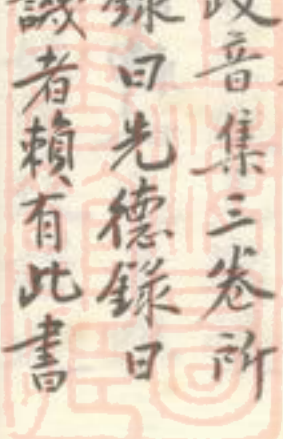 政音集三卷所
錄曰先德錄曰
識者賴有此書